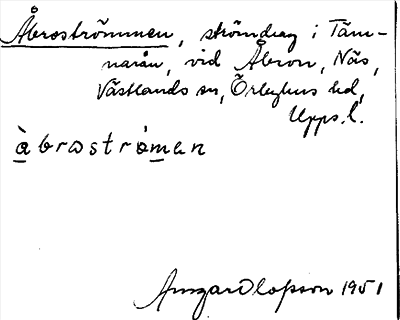 Åbroströmmen, strömdrag i Täm-
narån, vid Åbron, Näs,
Västlands sn, Örbyhus hd,
Upps. l.
àbroströ́men
Ansgar Olofsson 1951